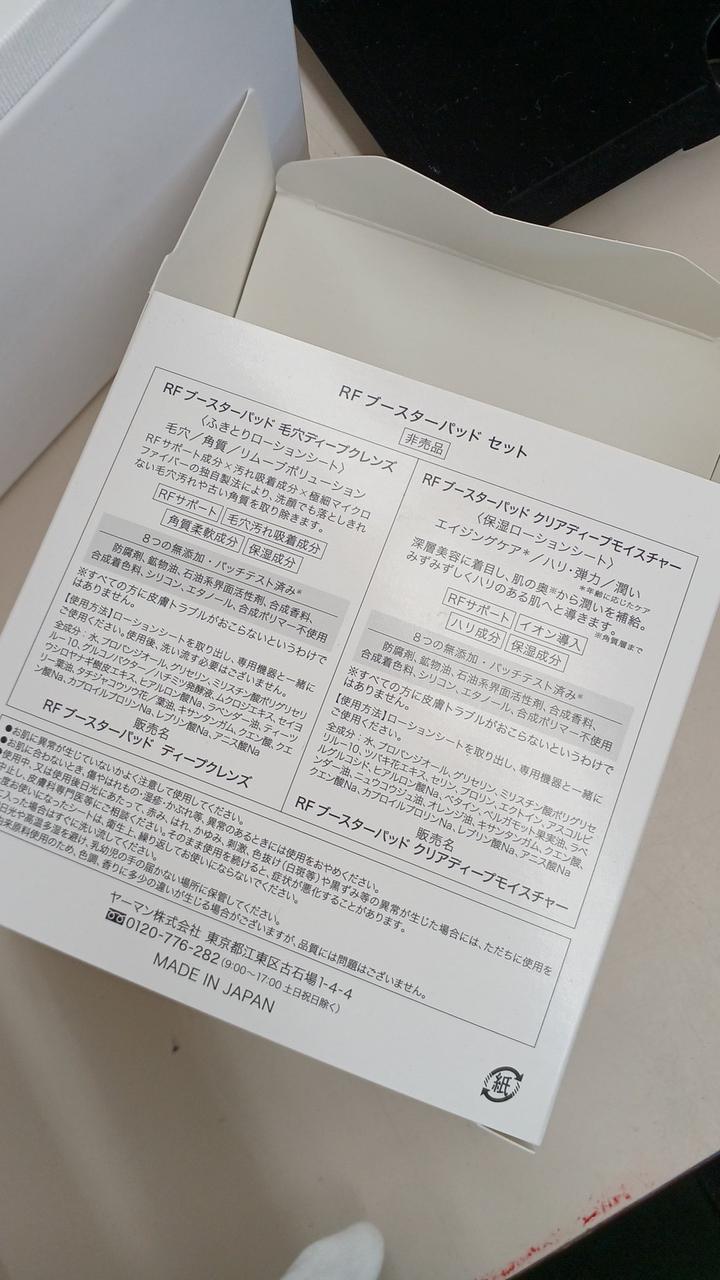 RF ブースターパッド セット
非売品
RF ブースターパッド 毛穴ディープクレンズ
〈ふきとりローションシート〉
毛穴／角質／リムーブポリューション
RFサポート成分×汚れ吸着成分×極細マイクロ
ファイバーの独自製法により、洗顔でも落としきれ
ない毛穴汚れや古い角質を取り除きます。
RFサポート 毛穴汚れ吸着成分
角質柔軟成分 保湿成分
8つの無添加・パッチテスト済み※
防腐剤、鉱物油、石油系界面活性剤、合成香料、
合成着色料、シリコン、エタノール、合成ポリマー不使用
※すべての方に皮膚トラブルがおこらないというわけで
はありません。
【使用方法】ローションシートを取り出し、専用機器と一緒に
ご使用ください。使用後、洗い流す必要はございません。
全成分：水、プロパンジオール、グリセリン、ミリスチン酸ポリグリセリ
ル－10、グルコノバクター／ハチミツ発酵液、ムクロジエキス、セイヨ
ウシロヤナギ樹皮エキス、ヒアルロン酸Na、ラベンダー油、ティーツ
リー葉油、タチジャコウソウ花／葉油、キサンタンガム、クエン酸、クエ
ン酸Na、カプロイルプロリンNa、レブリン酸Na、アニス酸Na
販売名
RF ブースターパッド ディープクレンズ
RF ブースターパッド クリアディープモイスチャー
〈保湿ローションシート〉
エイジングケア＊／ハリ・弾力／潤い
＊年齢に応じたケア
深層美容に着目し、肌の奥※から潤いを補給。
みずみずしくハリのある肌へと導きます。
※角質層まで
RFサポート イオン導入
ハリ成分 保湿成分
8つの無添加・パッチテスト済み※
防腐剤、鉱物油、石油系界面活性剤、合成香料、
合成着色料、シリコン、エタノール、合成ポリマー不使用
※すべての方に皮膚トラブルがおこらないというわけで
はありません。
【使用方法】ローションシートを取り出し、専用機器と一緒に
ご使用ください。
全成分：水、プロパンジオール、グリセリン、ミリスチン酸ポリグリセ
リル－10、ツバキ花エキス、セリン、プロリン、エクトイン、アスコルビ
ルグルコシド、ヒアルロン酸Na、ベタイン、ベルガモット果実油、ラベ
ンダー油、ニュウコウジュ油、オレンジ油、キサンタンガム、クエン酸、
クエン酸Na、カプロイルプロリンNa、レブリン酸Na、アニス酸Na
販売名
RF ブースターパッド クリアディープモイスチャー
●お肌に異常が生じていないかよく注意して使用してください。
●お肌に合わないとき、傷やはれもの・湿疹・かぶれ等、異常のあるときには使用をおやめください。
使用中、又は使用後日光にあたって、赤み、はれ、かゆみ、刺激、色抜け（白斑等）や黒ずみ等の異常が生じた場合には、ただちに使用を
中止し、皮膚科専門医等にご相談ください。そのまま使用を続けると、症状が悪化することがあります。
度お使いになったシートは、衛生上、繰り返してお使いにならないでください。
った場合はすぐに洗い流してください。
日光や高温多湿を避け、乳幼児の手の届かない場所に保管してください。
来原料使用のため、色調、香りに多少の違いが生じる場合がございますが、品質には問題はございません。
ヤーマン株式会社 東京都江東区古石場1-4-4
0120-776-282（9:00〜17:00 土日祝日除く）
MADE IN JAPAN
紙